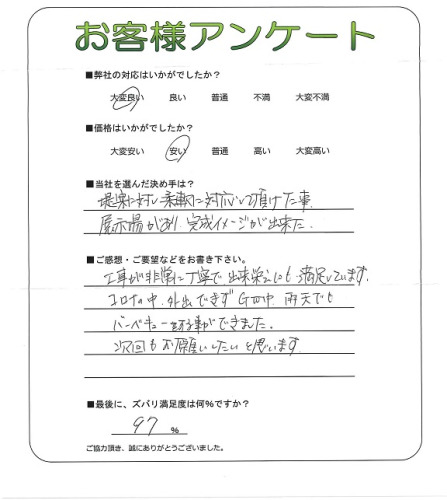 お客様アンケート
■弊社の対応はいかがでしたか？
大変良い 良い 普通 不満 大変不満
■価格はいかがでしたか？
大変安い 安い 普通 高い 大変高い
■当社を選んだ決め手は？
提案に対し柔軟に対応して頂けた事.
展示場があり、完成イメージが出来た.
■ご感想・ご要望などをお書き下さい。
工事が非常に丁寧で出来栄えにも満足しています.
コロナの中、外出できず GW中 雨天でも
バーベキューをする事ができました.
次回もお願いしたいと思います.
■最後に、ズバリ満足度は何%ですか？
97 %
ご協力頂き、誠にありがとうございました。